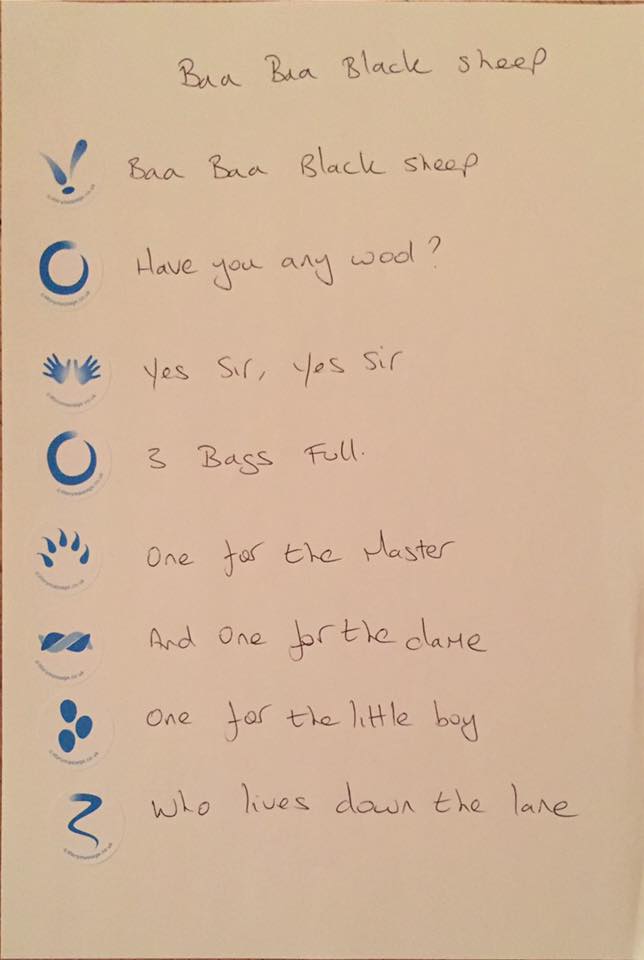 Baa Baa Black sheep
Baa Baa Black sheep
Have you any wool?
Yes Sir, yes sir
3 Bags Full.
One for the Master
And one for the dame
One for the little boy
who lives down the lane